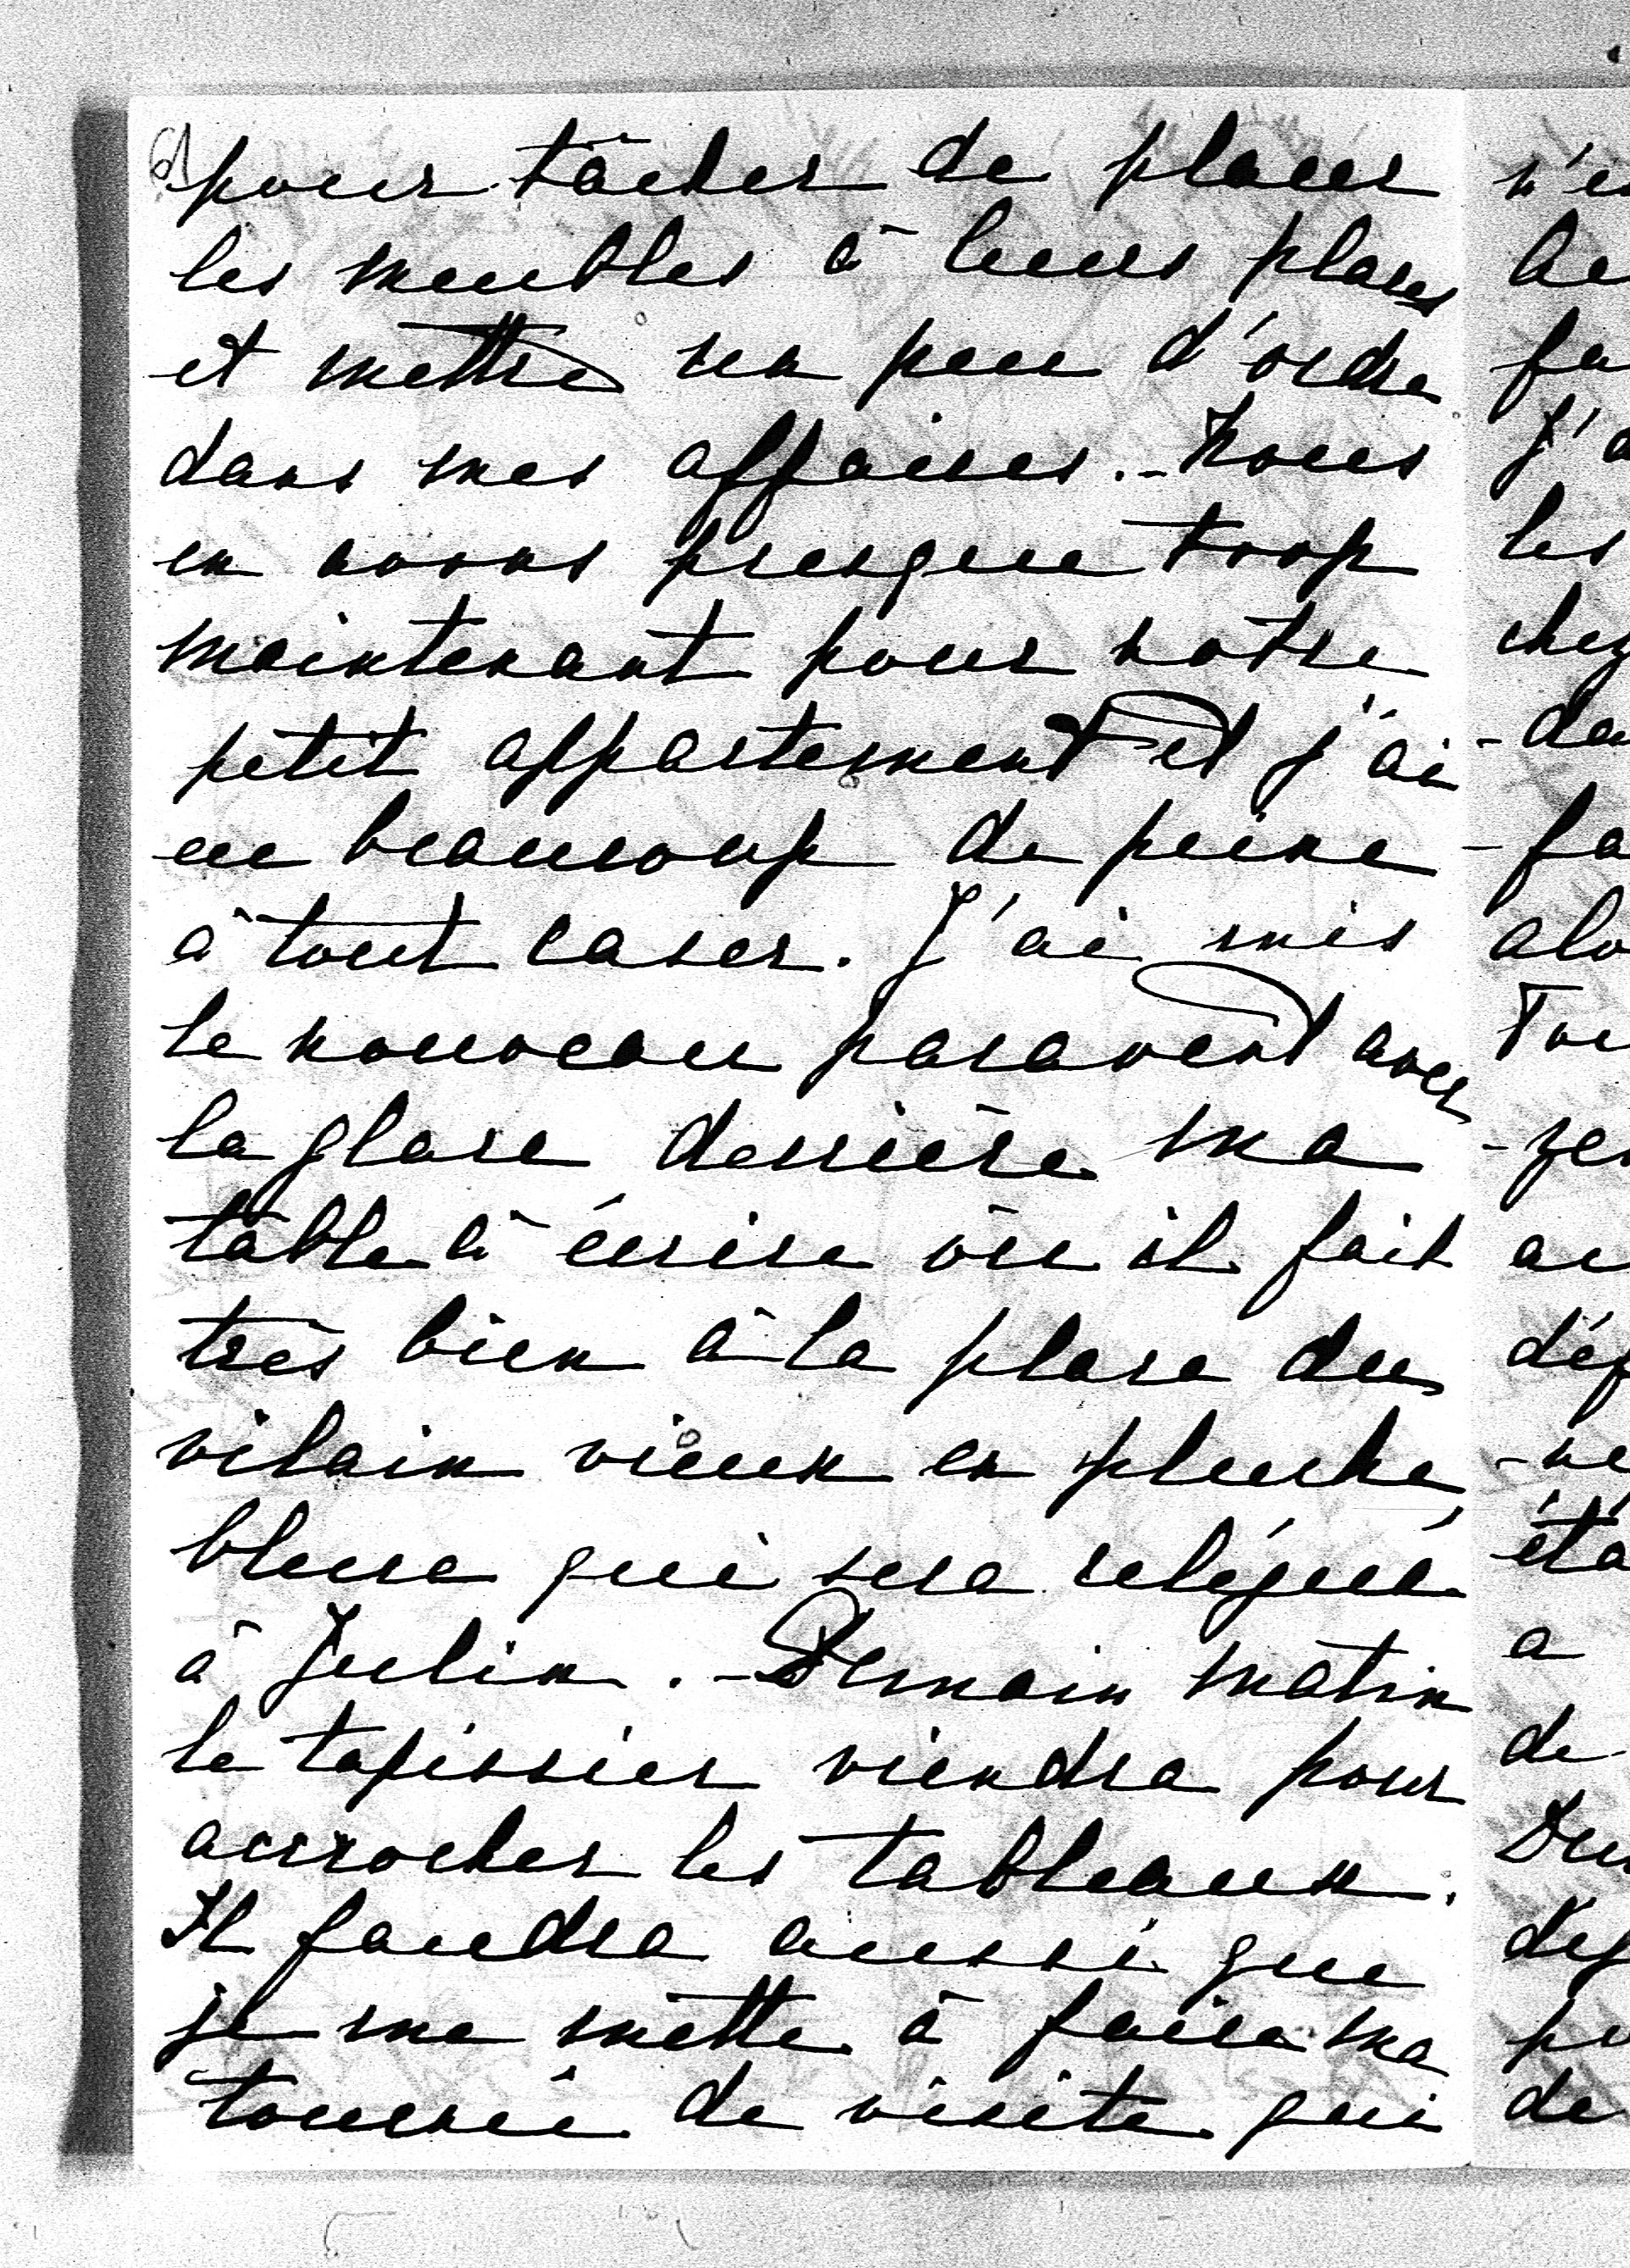 6)
pour tâcher de placer
les meubles à leurs places
et mettre un peu d'ordre
dans mes affaires. - Nous
en avons presque trop
maintenant pour notre
petit appartement et j'ai
eu beaucoup de peine
à tout caser. J'ai mis
le nouveau paravent avec
la glace derrière ma
table à écrire où il fait
très bien à la place du
vilain vieux en pluche
bleue qui sera relégué
à Julin. - Demain matin
le tapissier viendra pour
accrocher les tableaux.
Il faudra aussi que
je me mette à faire ma
tournée de visite qui
les
chez